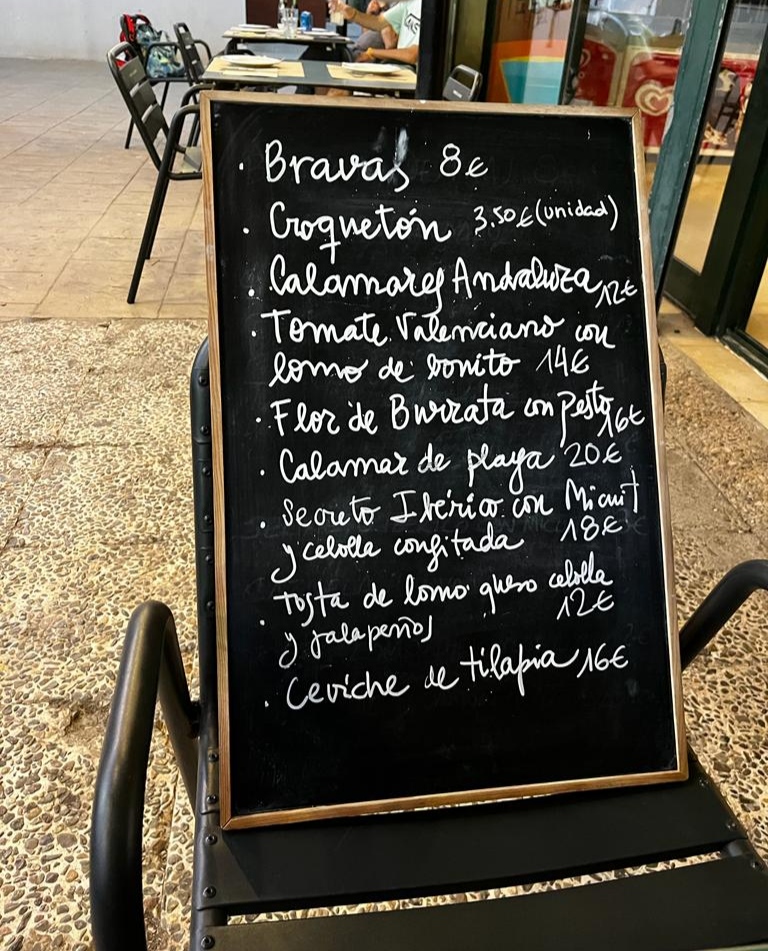 . Bravas 8€
. Croquetón 3.50€ (unidad)
. Calamares Andaluza 12€
. Tomate Valenciano con
lomo de bonito 14€
. Flor de Burrata con pesto 16€
. Calamar de playa 20€
. Secreto Ibérico con Micuit
y cebolla confitada 18€
. Tosta de lomo queso cebolla
y jalapeños 12€
. Ceviche de tilapia 16€